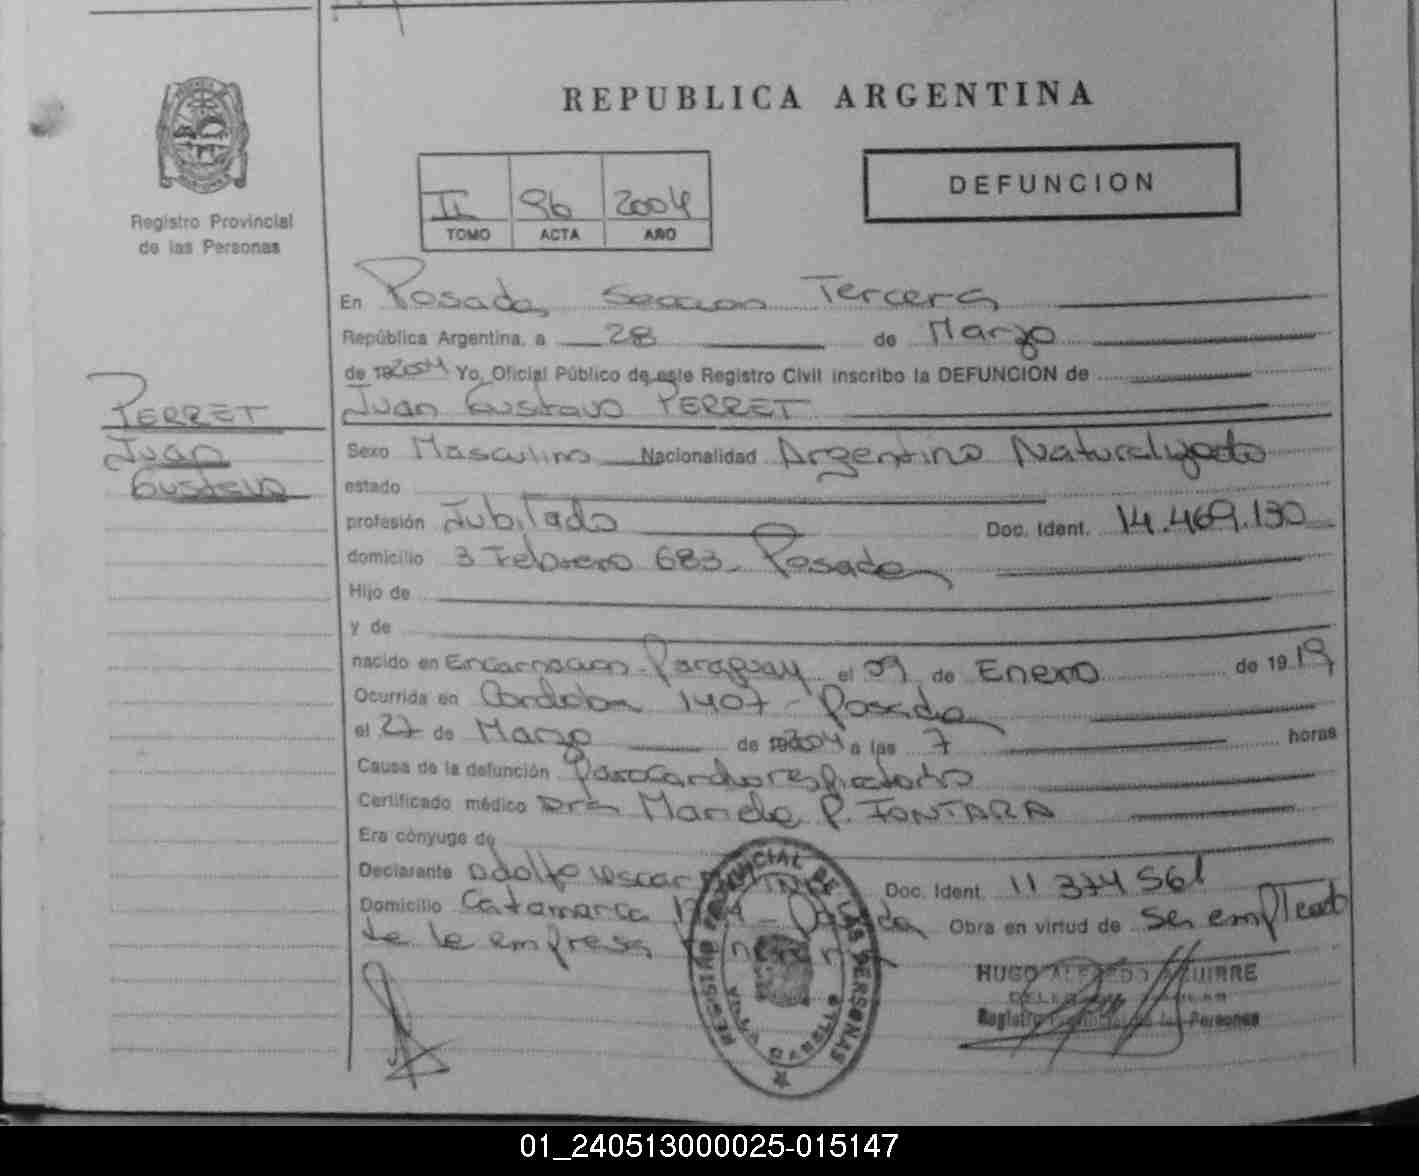 REPUBLICA ARGENTINA
Registro Provincial
de las Personas
II 96 2004
TOMO ACTA AÑO
DEFUNCION
PERRET
Juan
Gustavo
En Posadas, Seccion Tercera
República Argentina, a 28 de Marzo
de 2004 Yo, Oficial Público de este Registro Civil inscribo la DEFUNCION de
Juan Gustavo PERRET
Sexo Masculino Nacionalidad Argentino Naturalizado
estado
profesión Jubilado Doc. Ident. 14.469.130
domicilio 3 Febrero 683 - Posadas
Hijo de
y de
nacido en Encarnacion - Paraguay el 09 de Enero de 1919
Ocurrida en Cordoba 1407 - Posadas
el 27 de Marzo de 2004 a las 7 horas
Causa de la defunción Paro Cardiorespiratorio
Certificado médico Dra P. FONTARA
Era cónyuge de
Declarante Adolfo Oscar Doc. Ident. 11 374 561
Domicilio Catamarca Obra en virtud de ser empleado
de la empresa
REGISTRO PROVINCIAL DE LAS PERSONAS
HUGO ALFREDO AGUIRRE
Registro de las Personas
01_240513000025-015147